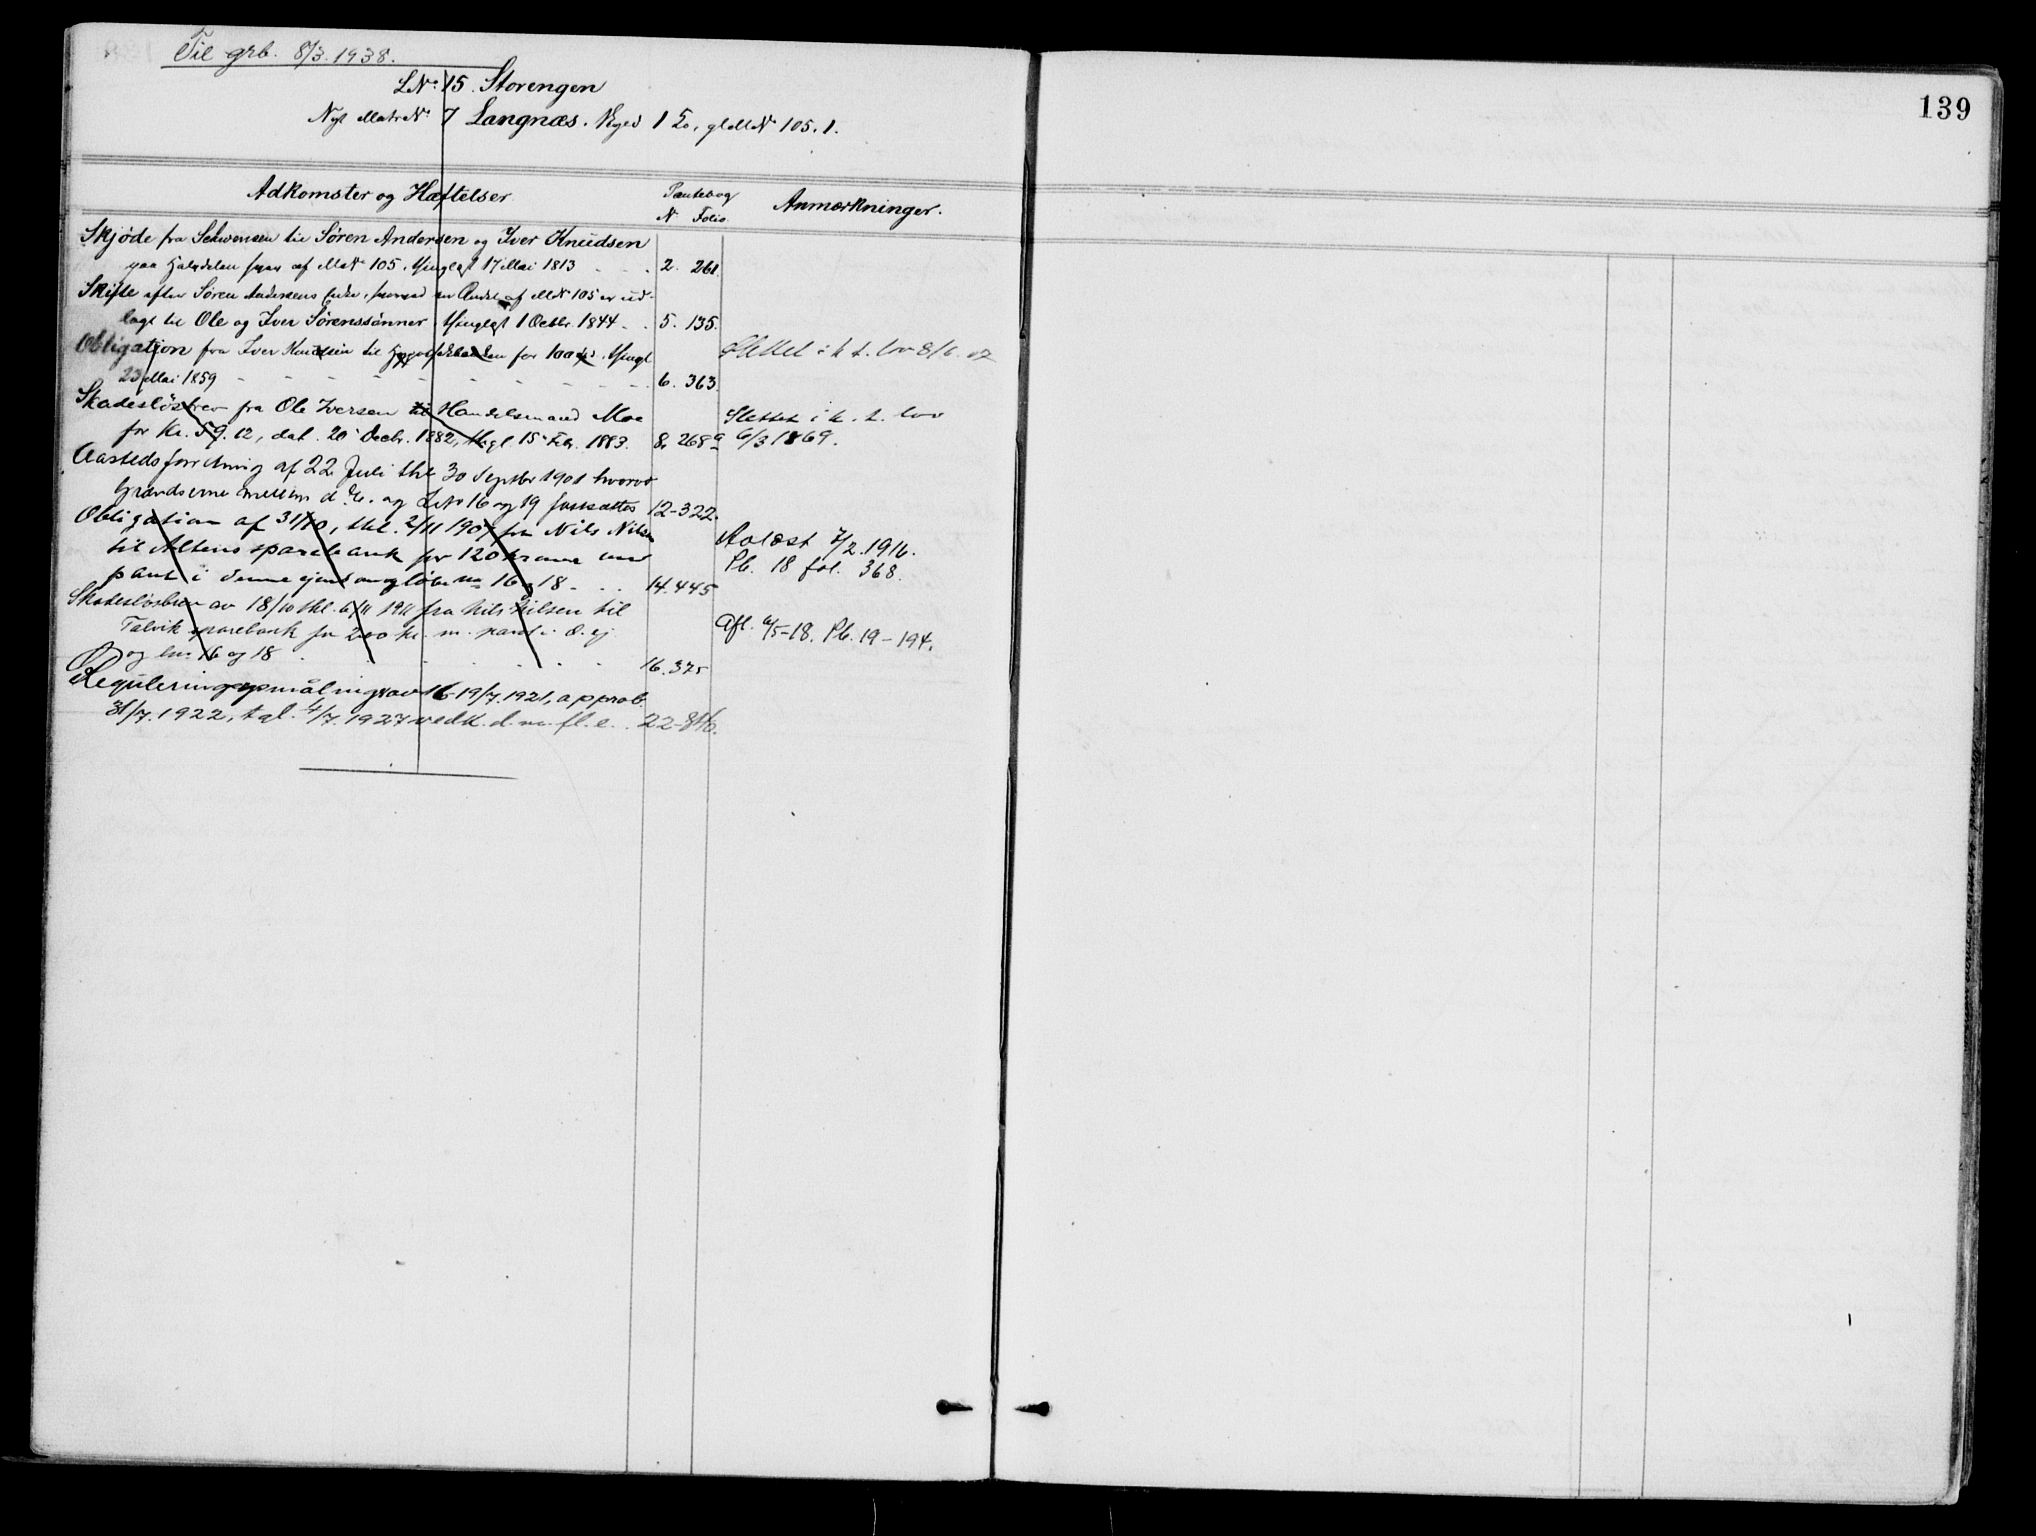 Til grb. 8/3. 1938.
139
LNo 15. Storengen
Nyt MatrNo 7 Langnæs. 1 gl MN 105.1.
Adkomster og Hæftelser
Pantebog
Anmærkninger.
N Folio
Skjöde fra til Sören Andersen og Iver Knudsen
paa af MN 105, thinglyst 17 Mai 1813 - - . 2. 261.
Skifte efter Sören Andersens Enke, hvorved en Andel af MN 105 er ud-
lagt til Ole og Iver Sörenssönner, thinglyst 1 Octbr. 1844 - . 5. 135.
Obligation fra Iver Knudsen til for 100 thingl
Slettet i h. t. lov 8/6.
23 Mai 1859 - - - - - - - - - 6. 363.
Skadeslösbrev fra Ole Iversen til Handelsmand Moe
Slettet i h. t. lov
for Kr. 59.12, dat. 20 Decbr. 1882, thgl. 15 Febr. 1883. 8. 268a
6/3 1869.
Aastedsforretning af 22 Juli thl 30 Septbr 1901 hvorved
Grændserne mellem d. E. og LNo 16 og 19 fastsættes 12-322.
Obligation af 31/10, thl. 2/11 1907 fra Nils Nilsen
Avlæst 7/2. 1916.
til Altens sparebank for 120 kroner med
Pb. 18 fol. 368.
pant i denne ejendom og löbe no 16 og 18 - . . 14.445
Skadeslösbrev av 18/10 thl. 6/11 1911 fra Nils Nilsen til
Talvik sparebank for 200 kr. m. pant i d. ej
Afl. 6/5-18. Pb. 19-194.
og lnr. 16 og 18 . . . . . . 16.375
Reguleringsopmåling av 16-19/7.1921, approb.
31/7.1922, tgl. 4/7.1927 vedk. d. m. fl. e. . 22-